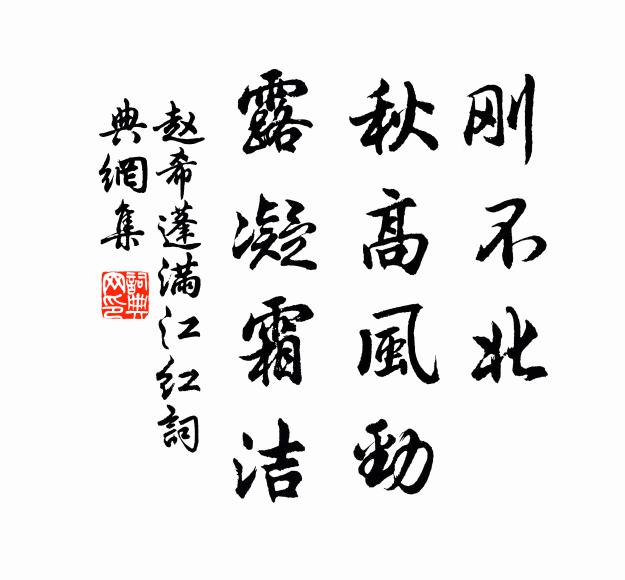 刚不北
秋高風勁
露凝霜洁
赵希蓬满江红詞
典網集
詞典网印